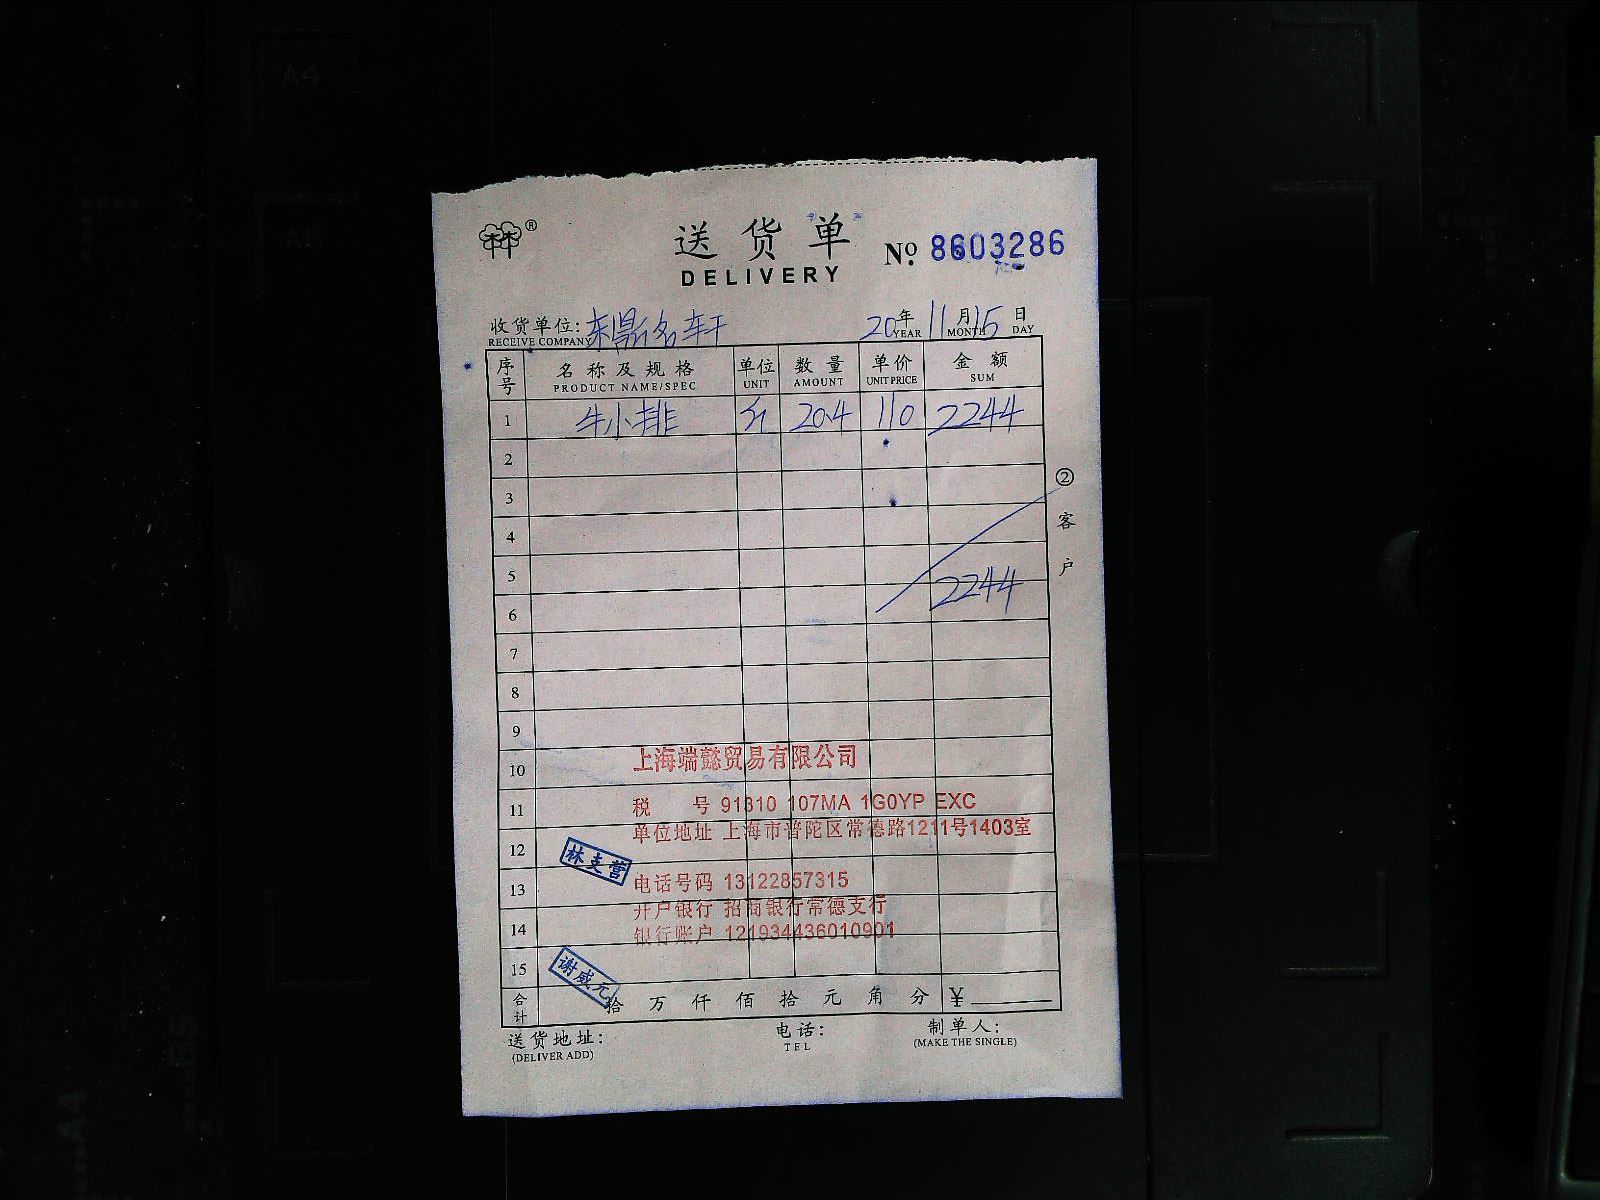 林®
送货单
DELIVERY
No. 8603286
收货单位: 东鼎名轩 20年 11月 15日
RECEIVE COMPANY YEAR MONTH DAY
序号 名称及规格 单位 数量 单价 金额
PRODUCT NAME/SPEC UNIT AMOUNT UNIT PRICE SUM
1 牛小排 斤 20.4 110 2244
2
3
4
5
6 2244
7
8
9
10
11
12
13
14
15
上海端懿贸易有限公司
税 号 91310 107MA 1G0YP EXC
单位地址 上海市普陀区常德路1211号1403室
林支营
电话号码 13122857315
开户银行 招商银行常德支行
银行账户 121934436010901
谢威元
合计 拾 万 仟 佰 拾 元 角 分 ¥
送货地址: 电话: 制单人:
(DELIVER ADD) TEL (MAKE THE SINGLE)
②客户
A4
A5
A4